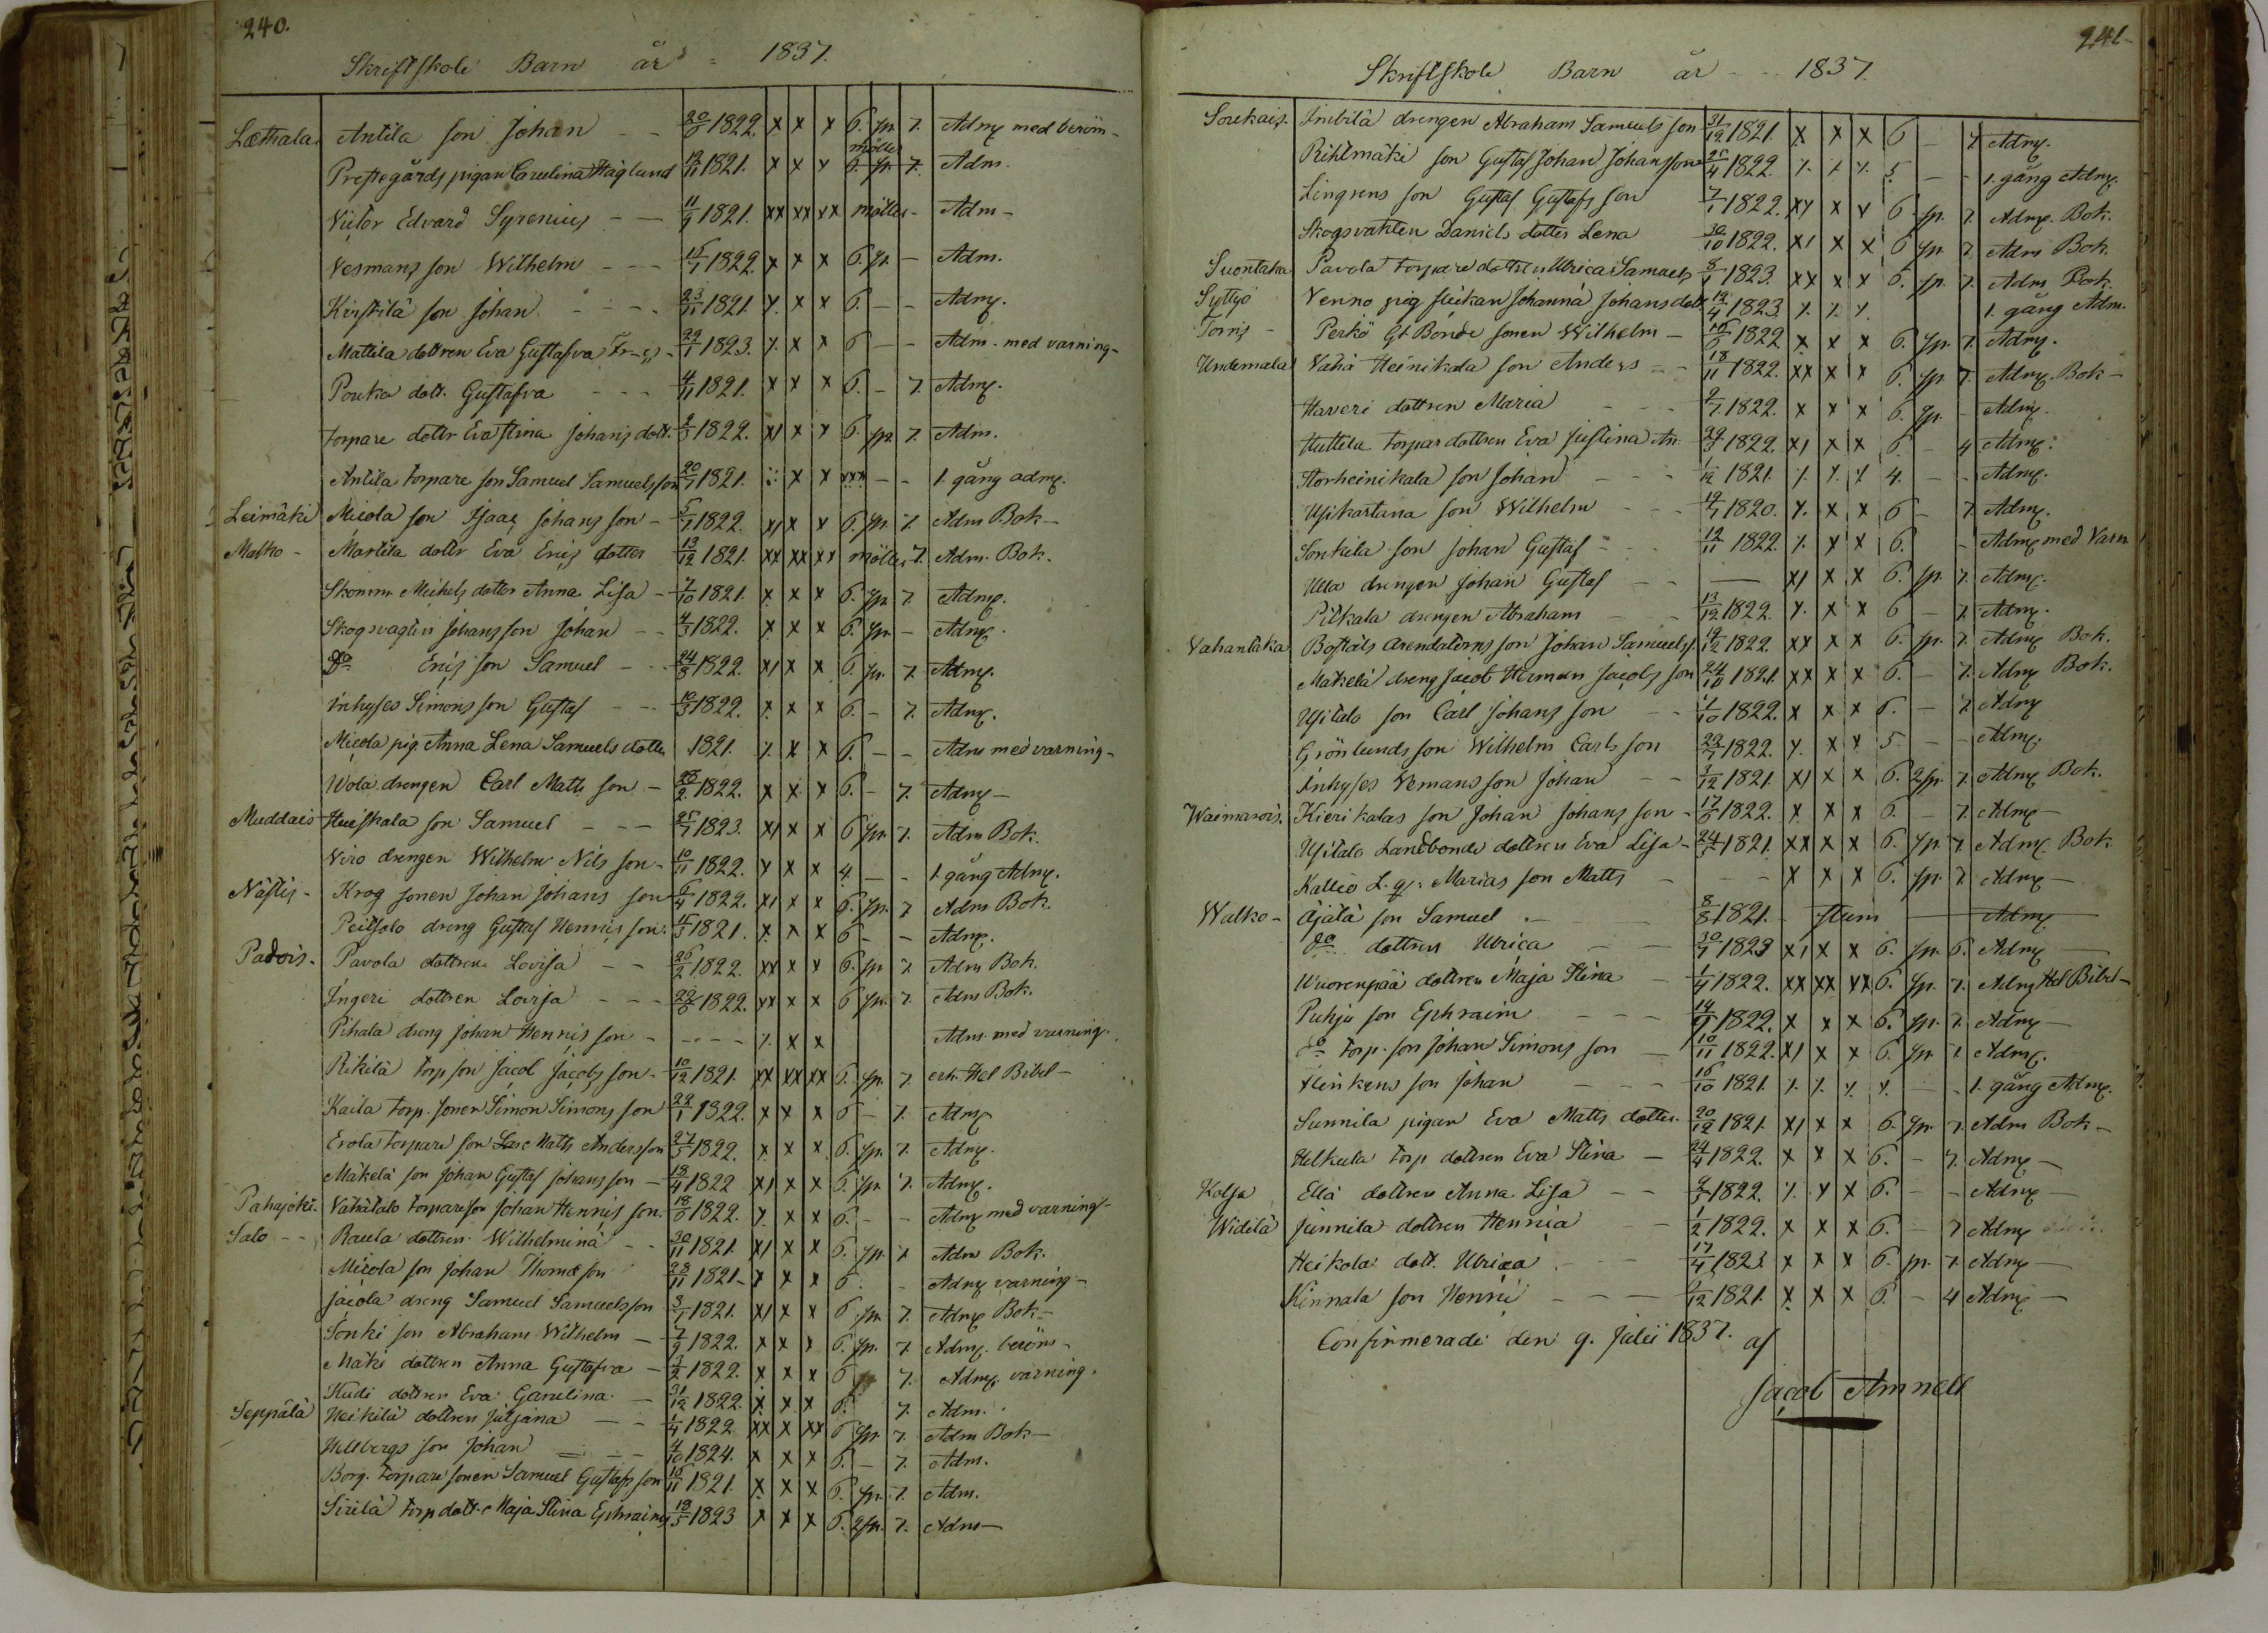 240.
Skriftskole Barn år 1837.
Læthala Antila son Johan - - 20/6 1822. x x x 6. sp. 7. Admç med beröm -
Prestegårds pigan Carolina Haglund 12/11 1821. x x x möller 6. sp. 7. Adm.
Victor Edvard Syrenius - - 11/9 1821. xx xx xx möller - Adm -
Vesmans son Wilhelm - - - 15/7 1822. x x x 6. sp. - Adm.
Kirstilä son Johan - - - 23/11 1821. x x x 6. - - Admç.
Mattila dottren Eva Gustafva - 29/1 1823. x x x 6 - - Adm. med varning -
Pouka dott. Gustafva - - - 4/11 1821. x x x 6. - 7. Admç.
torpare dottr Eva Stina Johans dott. 2/3 1822. x x x 6. sp. 7. Adm.
Antila torpare son Samuel Samuelsson 20/7 1821. x x xxx - - 1. gång admç.
Leimäki Micola son Isaac Johans son - 5/7 1822. x x x 6. sp. 7. Adm Bok -
Malko - Martila dottr Eva Erics dotter 13/12 1821. xx xx xx möller 7. Adm. Bok.
Michels dotter Anna Lisa - 7/10 1821. x x x 6. sp. 7 Admç.
Skogsvagtens Johans son Johan - - 4/3 1822. x x x 6. sp. - Admç.
Do Erics son Samuel - - 24/8 1822. x x x 6 sp. 7 Admç.
Inhyses Simons son Gustaf - - 19/3 1822. x x x 6. - 7. Admç.
Micola pig. Anna Lena Samuels dotter 1821. x x x 6. - - Adm med varning -
Wola drengen Carl Matts son - 26/2 1822. x x x 6. - 7. Admç -
Muddais Huiskala son Samuel - - - 25/7 1823. x x x 6 sp. 7. Adm Bok.
Viro drengen Wilhelm Nils son - 10/11 1822. x x x 4. - - 1 gång Admç.
Nästis - Krog sonen Johan Johans son 6/4 1822. x x x 6. sp. 7 Adm Bok.
Peitsalo dreng Gustaf Hennis son. 15/5 1821. x x x 6 - - Admç.
Padois - Pavola dottren Lovisa - - 26/2 1822. xx x x 6. sp. 7. Adm Bok.
Ingeri dottren Lovisa - - - 22/6 1822. xx x x 6 sp. 7. Adm Bok.
Pihala dreng Johan Hennis son - - - - - x x x Adm. med varning.
Rikilä torp son Jacob Jacobs son - 10/12 1821. xx xx xx 6. sp. 7. erh. Hel Bibel -
Kaila torp. sonen Simon Simons son 22/1 1822. x x x 6 - 7. Admç
Erola torpare son Matts Andersson 27/5 1822. x x x 6. sp. 7. Admç.
Mäkelä son Johan Gustaf Johans son - 18/4 1822 x x x 6. sp. 7. Admç.
Pahajoki. Vähätalo torpareson Johan Hennis son. 18/6 1822. x x x 6. - - Admç med varning -
Salo - - Raula dottren Wilhelmina - - 30/11 1821. x x x 6. sp. 7 Adm Bok.
Micola son Johan Thomasson 28/11 1821 - x x x 6 - - Admç varning -
Jacola dreng Samuel Samuelsson 3/7 1821. x x x 6 sp. 7. Admç Bok -
Sonki son Abraham Wilhelm - 7/9 1822. x x x 6. sp. 7. Admç. beröm -
Mäki dottren Anna Gustafva - 3/2 1822. x x x 6 7. Admç. varning.
Kudi dottren Eva Carolina - 31/12 1822. x x x 6. 7. Adm.
Seppälä Heikilä dottren Juljana - - 1/4 1822 xx x xx 6 sp. 7. Adm Bok -
Hellbergs son Johan - - - 4/10 1824. x x x 6. - 7. Adm.
Borg. torpare sonen Samuel Gustafs son 16/11 1821. x x x 6. sp. 7. Adm.
Sirilä torp dott. Maja Stina Ephraims 19/5 1823 x x x 6. 2 sp. 7. Adm -
241
Skriftskole Barn år - - 1837.
Soukais. Imbilä drengen Abraham Samuels son 31/12 1821. x x x 6 - 7 Admç.
Rihlmäki son Gustaf Johan Johansson 25/4 1822. x x x 5. - - 1. gång Admç.
Lingrens son Gustaf Gustafs son 7/1 1822. xx x x 6. sp. 7. Admç. Bok.
Skogsvakten Daniels dotter Lena 30/10 1822. x x x 6 sp. 7. Adm Bok.
Suontaka Pavola torpare dottren Ulrica Samuels 8/1 1823. xx x x 6. sp. 7. Adm Bok.
Syttyö Venno pig flickan Johanna Johans dott. 12/4 1823. x x x 1. gång Adm.
Torris - Perkö Gl Bonde sonen Wilhelm - 16/6 1822 x x x 6. sp. 7. Admç.
Undemala Vähä Heinikala son Anders - - 18/11 1822. xx x x 6. sp. 7. Admç. Bok -
Haveri dottren Maria - - - 2/7 1822. x x x 6. sp. - Admç.
Huttila torpar dottren Eva Justina 29/3 1822. x x x 6. - 4 Admç.
Storheinikala son Johan - - - 1/12 1821. x x x 4. - - Admç.
Usikartana son Wilhelm - - - 19/7 1820. x x x 6 - 7. Admç.
Sonkila son Johan Gustaf - - - 12/11 1822. x x x 6. - Admç med Varn
Ulla drengen Johan Gustaf - - - x x x 6. sp. 7. Admç.
Pitkala drengen Abraham - - 13/12 1822. x x x 6 - 7. Admç.
Vahantaka Boställs arendatorns son Johan Samuels s. 19/12 1822. xx x x 6. sp. 7. Admç Bok.
Mäkelä dreng Jacob Herman Jacobs son 24/10 1821. xx x x 6. - 7. Admç Bok.
Usitalo son Carl Johans son - - 1/10 1822. x x x 6. - 7 Admç
Grönlunds son Wilhelm Carls son 22/7 1822. x x x 5. - - Admç.
Inhyses Vemans son Johan - - 3/12 1821. x x x 6. 2 sp. 7 Admç Bok.
Waimarois. Kierikalas son Johan Johans son - 17/6 1822. x x x 6. - 7. Admç -
Usitalo Landbonde dottren Eva Lisa - 24/5 1821. xx x x 6. sp. 7 Admç Bok
Kallio Marias son Matts - - - x x x 6. sp. 7 Admç -
Walko - Äjälä son Samuel - - 8/8 1821. - stum - Admç
Do dottren Ulrica - - 30/7 1823 x x x 6. sp. 6. Admç -
Wuorenpää dottren Maja Stina - 1/4 1822. xx xx xx 6. sp. 7. Admç Hel Bibel -
Puhja son Ephraim - - - 14/9 1822. x x x 6. sp. 7. Admç -
do torp. son Johan Simons son - 10/11 1822. x x x 6. sp. 7 Admç.
Heinkens son Johan - - - 16/10 1821. x x x x - - 1. gång Admç.
Sunnila pigan Eva Matts dotter. 20/12 1821. x x x 6. sp. 7. Adm Bok -
Helkula torp dottren Eva Stina - 24/4 1822. x x x 6. - 7. Admç -
Kolsa Ellä dottren Anna Lisa - - 9/5 1822. x x x 6. - - Admç -
Widilä Junnila dottren Hennica - - 1/2 1822. x x x 6. - 7 Admç
Heikola dott. Ulrica - - 17/4 1823 x x x 6. sp. 7. Admç -
Kinnala son Henric - - - 6/12 1821. x x x 6. - 4 Admç -
Confirmerade den 9. Julii 1837. af
Jacob Amnell